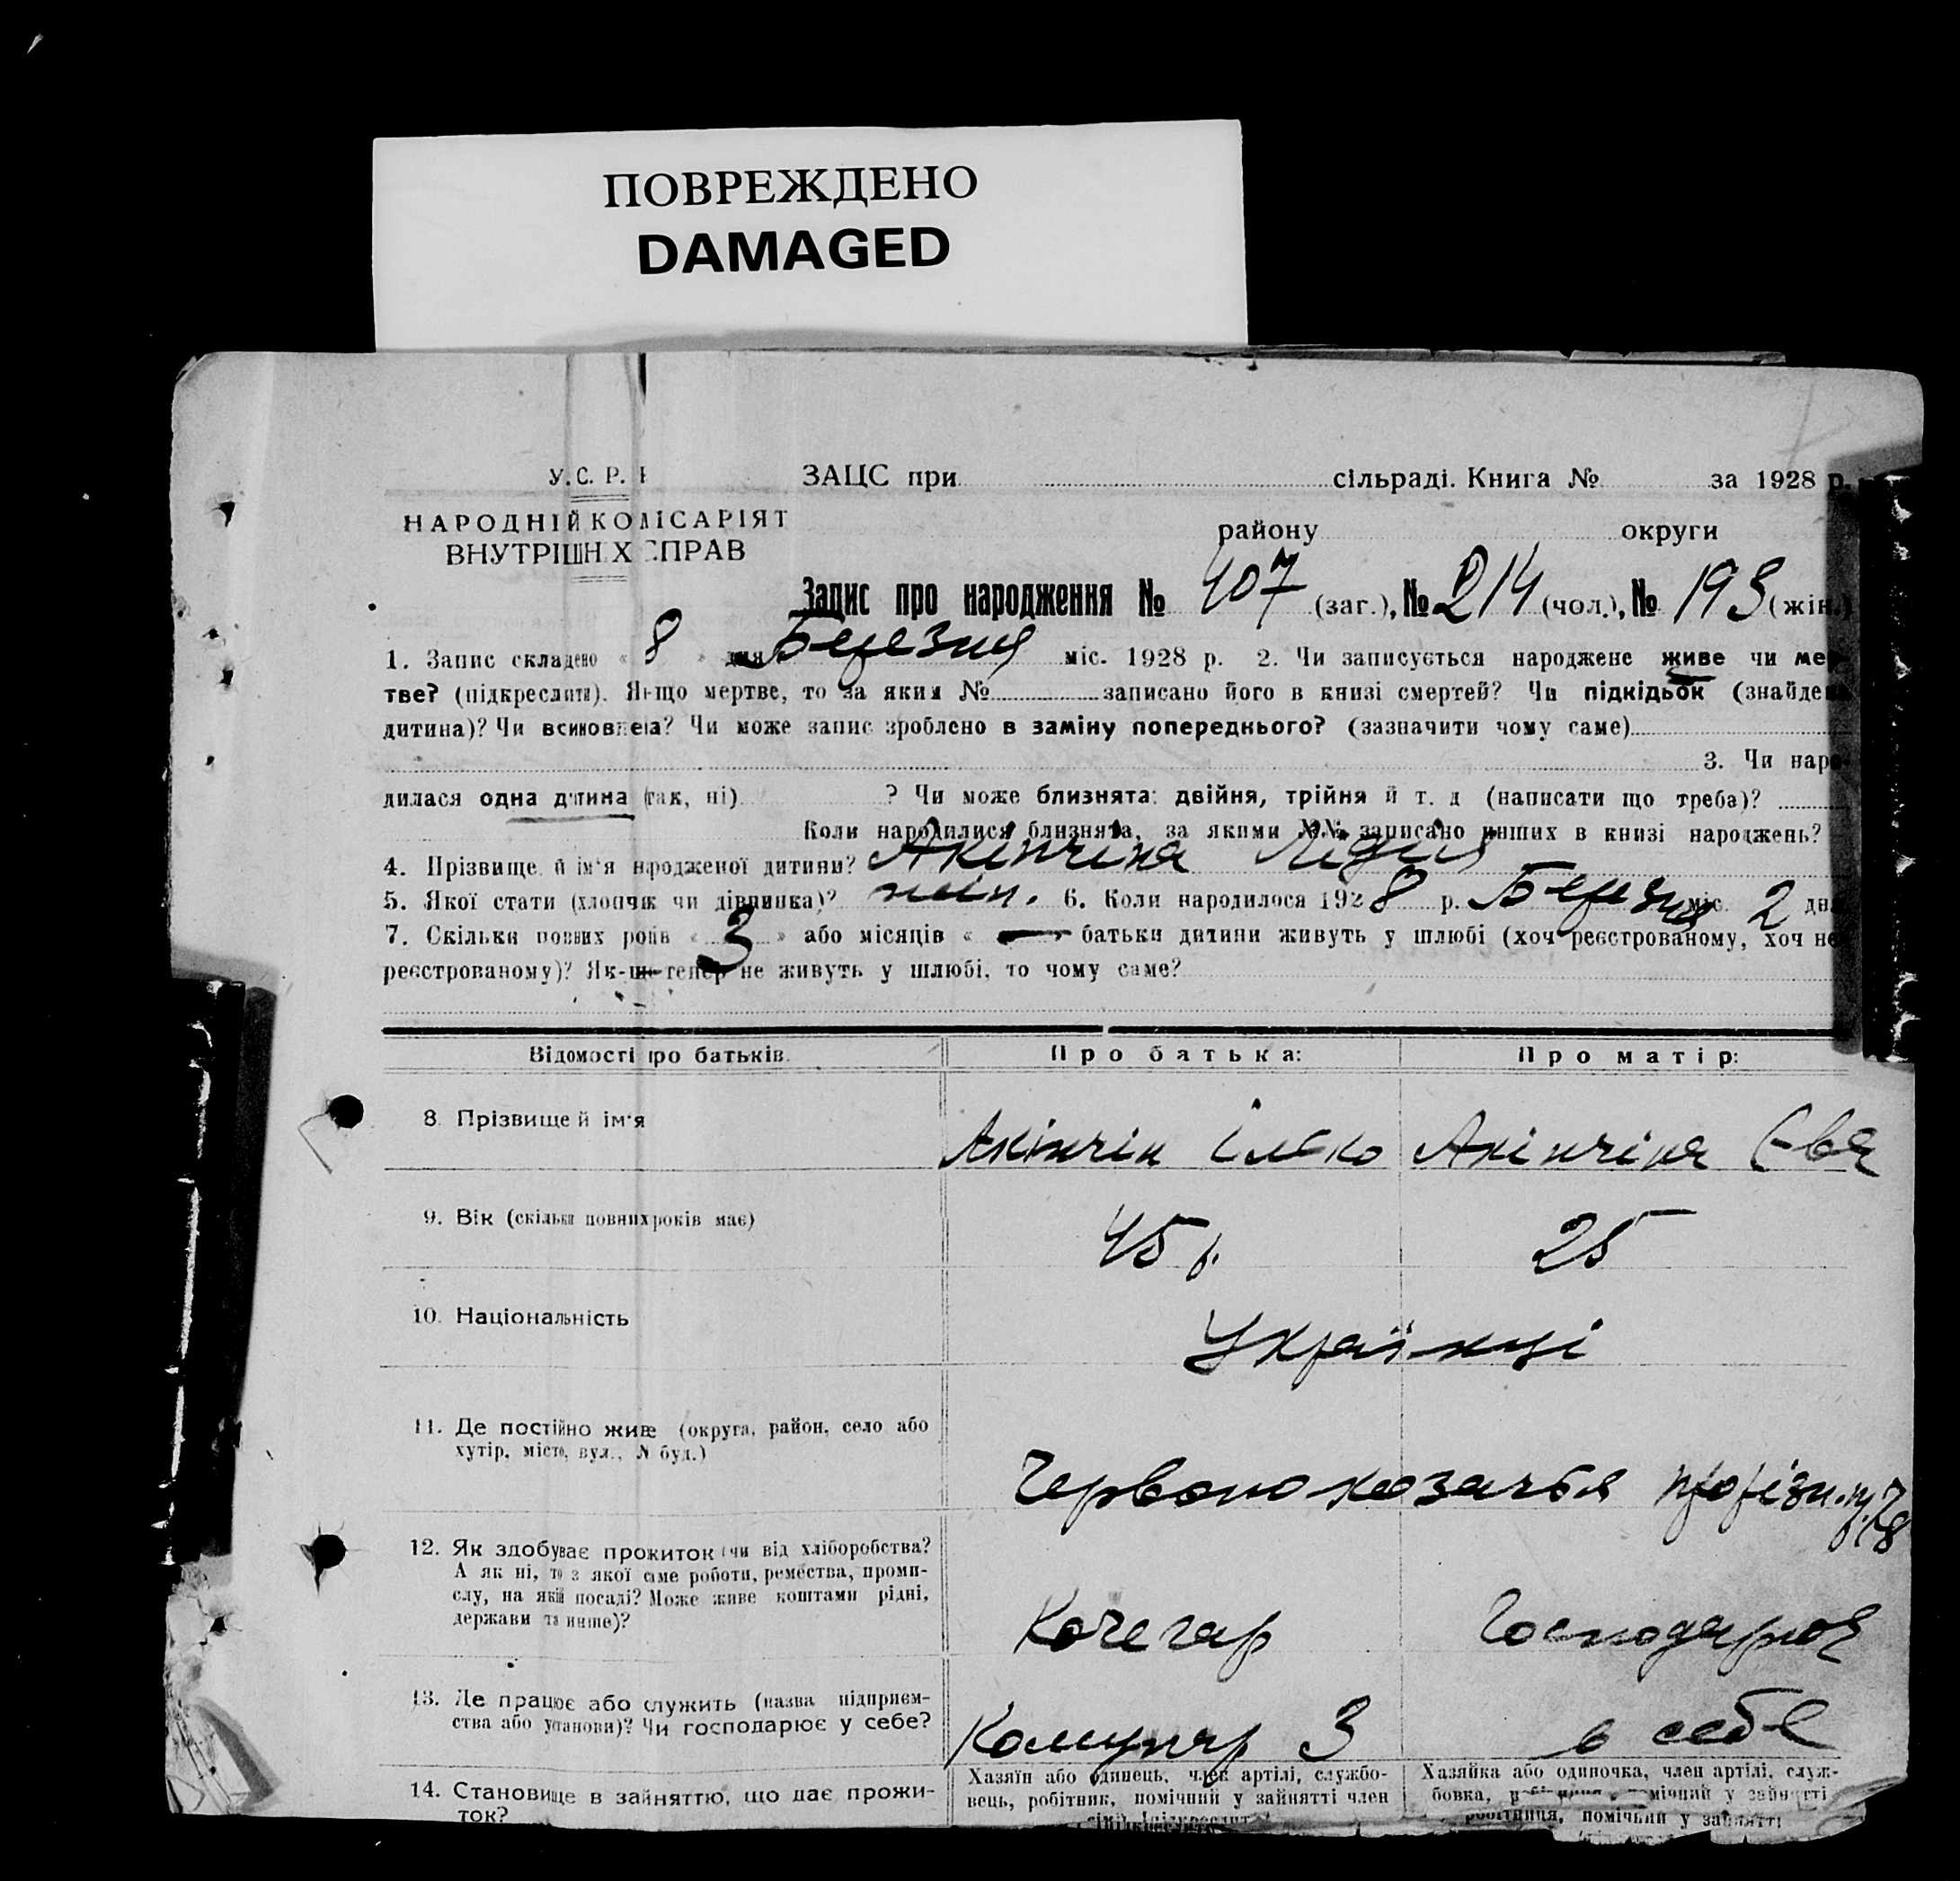 ПОВРЕЖДЕНО
DAMAGED
У.С.Р.Р.
ЗАЦС при сільраді. Книга № за 1928 р.
НАРОДНІЙ КОМІСАРІЯТ
району округи
ВНУТРІШНІХ СПРАВ
Запис про народження № 407 (заг.), № 214 (чол.), № 193 (жін.)
1. Запис складено « 8 » дня Березня міс. 1928 р. 2. Чи записується народжене живе чи мер-
тве? (підкреслити). Якщо мертве, то за яким № записано його в книзі смертей? Чи підкідьок (знайдена
дитина)? Чи всиновлена? Чи може запис зроблено в заміну попереднього? (зазначити чому саме)
3. Чи наро-
дилася одна дитина (так, ні) ? Чи може близнята: двійня, трійня й т. д (написати що треба)?
Коли народилися близнята, за якими №№ записано инших в книзі народжень?
4. Прізвище й ім'я народженої дитини? Акінчіна Лідія
5. Якої стати (хлопчик чи дівчинка)? жін. 6. Коли народилося 1928 р. Березня міс. 2 дня
7. Скільки повних років « 3 » або місяців « — » батьки дитини живуть у шлюбі (хоч реєстрованому, хоч не
реєстрованому)? Як-що тепер не живуть у шлюбі, то чому саме?
Відомості про батьків. Про батька: Про матір:
8. Прізвище й ім'я Акінчін Ілько Акінчіна Єва
9. Вік (скільки повних років має) 45 р. 25
10. Національність Українці
11. Де постійно живе (округа, район, село або
хутір, місто, вул., № буд.)
Червоно козачья прорізн.
12. Як здобуває прожиток (чи від хліборобства?
А як ні, то з якої саме роботи, ремества, проми-
слу, на якій посаді? Може живе коштами рідні,
держави та инше)?
Кочегар Господарює
13. Де працює або служить (назва підприєм-
ства або установи)? Чи господарює у себе?
Комунар 3 в себе
14. Становище в зайняттю, що дає прожи-
ток?
Хазяїн або одинець, член артілі, службо-
вець, робітник, помічний у зайнятті член
Хазяйка або одиночка, член артілі, служ-
бовка, помічний у зайнятті
робітниця, помічний у зайнятті